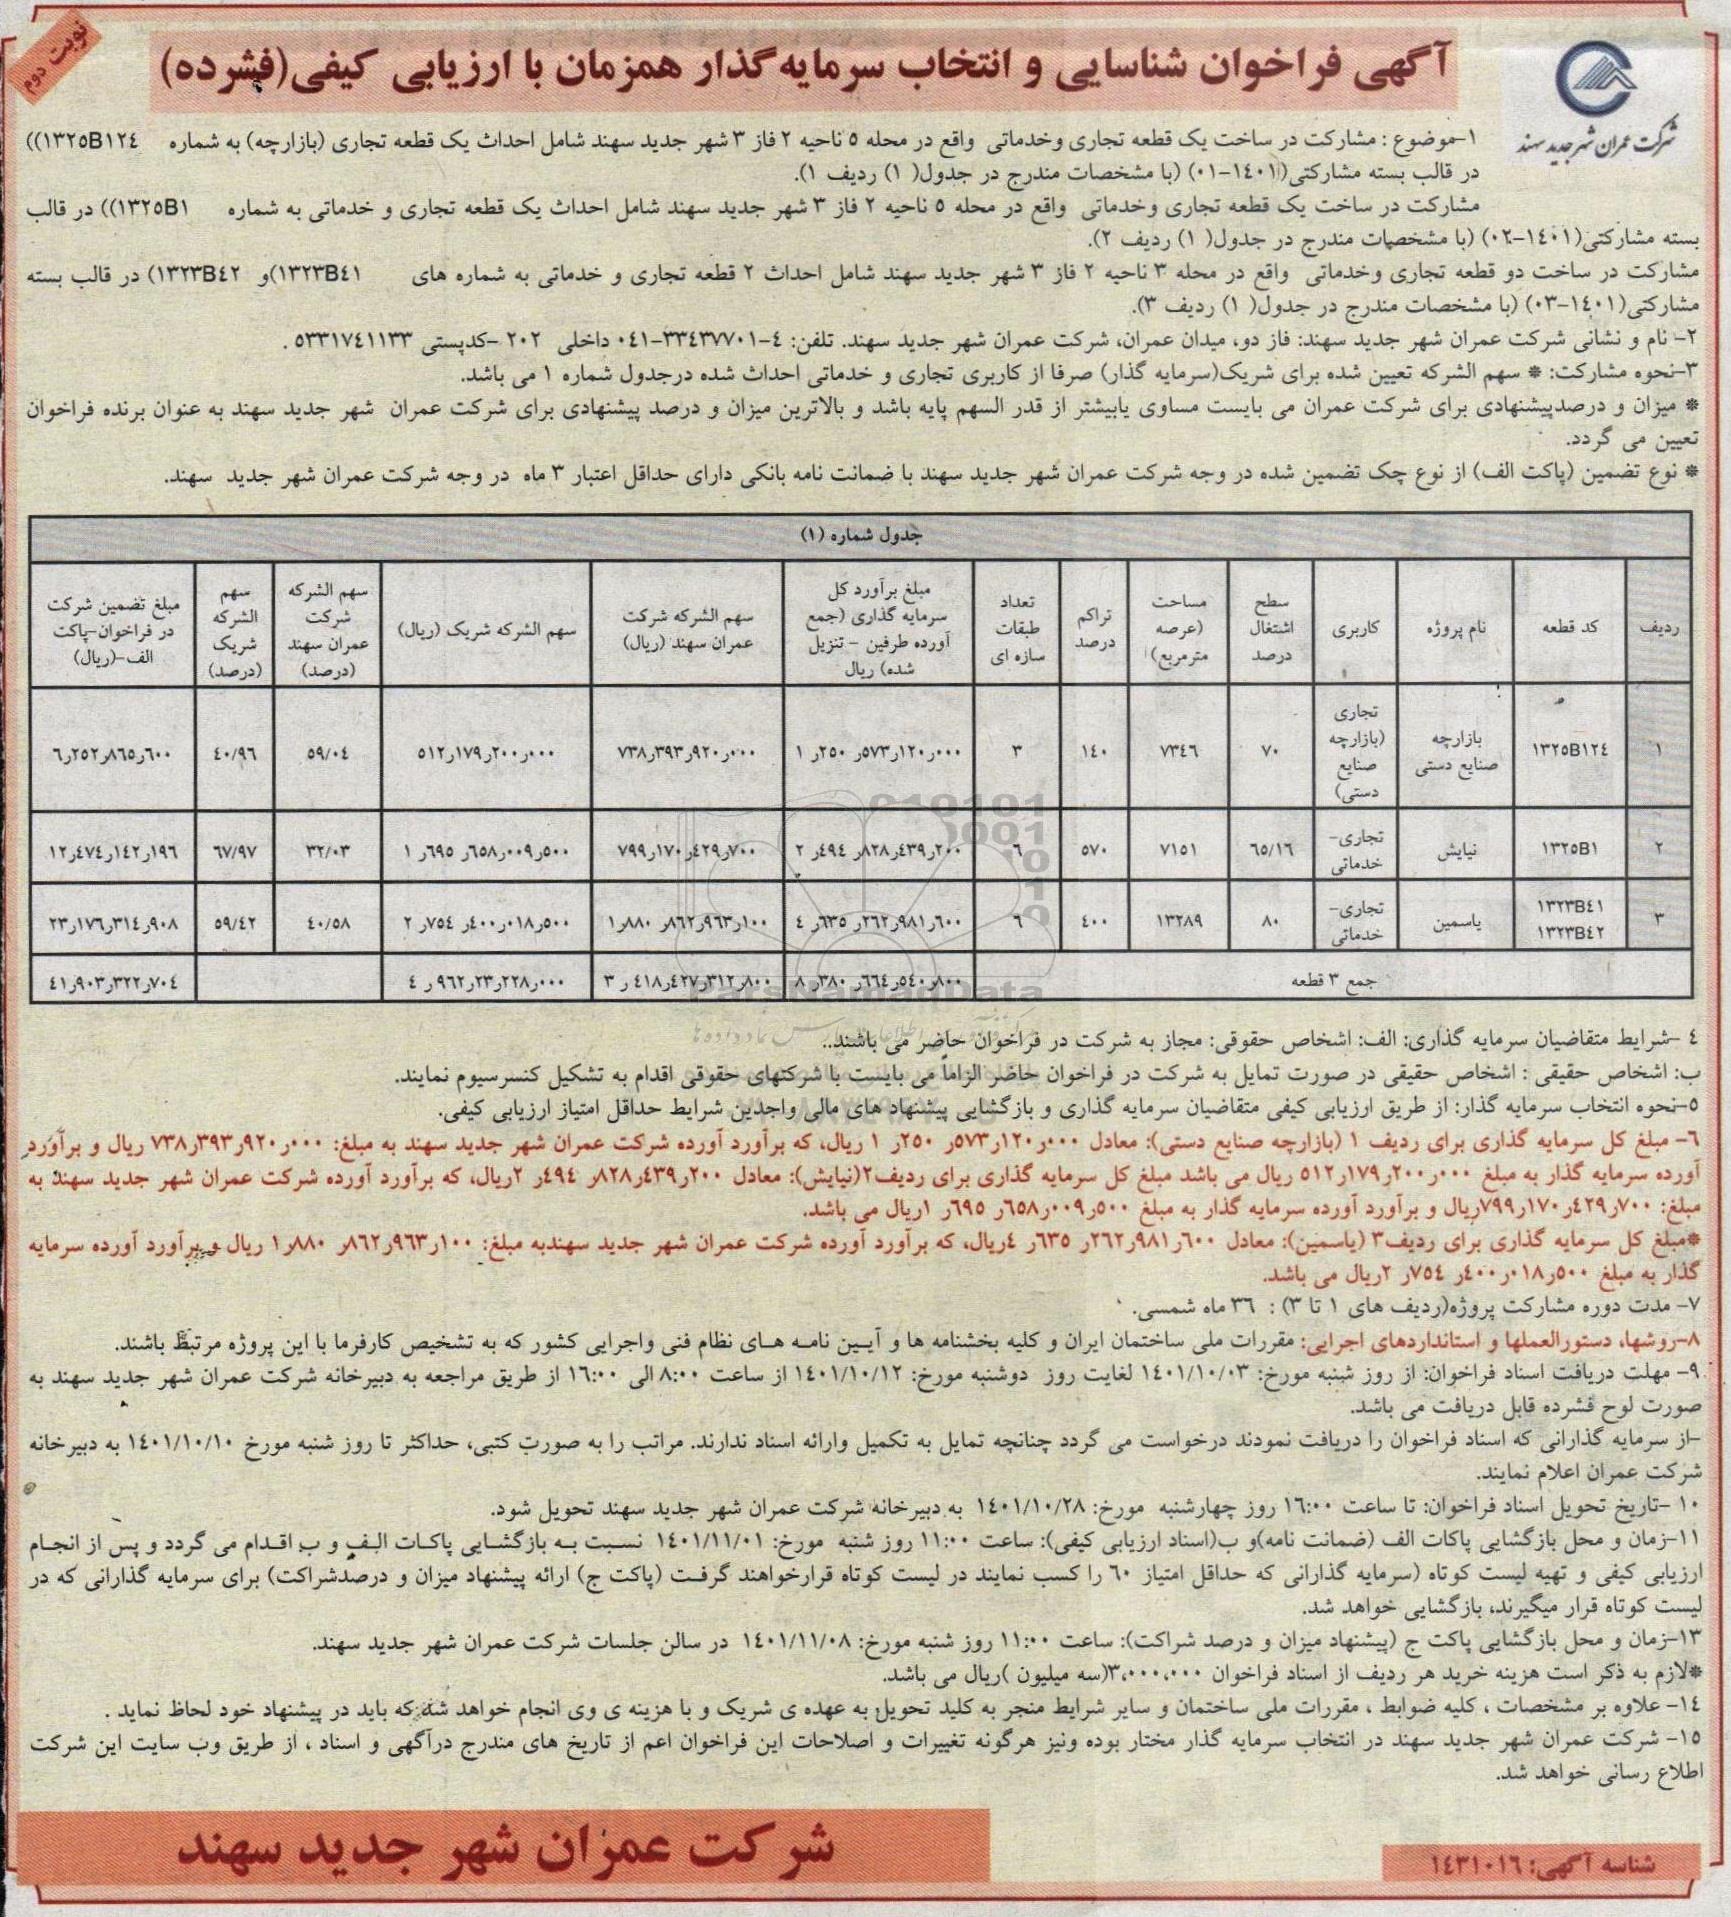 نوبت دوم
آگهی فراخوان شناسایی و انتخاب سرمایه گذار همزمان با ارزیابی کیفی(فشرده)
شرکت عمران شهر جدید سهند
۱-موضوع : مشارکت در ساخت یک قطعه تجاری وخدماتی واقع در محله ۵ ناحیه ۲ فاز ۳ شهر جدید سهند شامل احداث یک قطعه تجاری (بازارچه) به شماره ۱۳۲۵B۱۲۴))
در قالب بسته مشارکتی(۱۴۰۱-۰۱) (با مشخصات مندرج در جدول( ۱) ردیف ۱).
مشارکت در ساخت یک قطعه تجاری وخدماتی واقع در محله ۵ ناحیه ۲ فاز ۳ شهر جدید سهند شامل احداث یک قطعه تجاری و خدماتی به شماره ۱۳۲۵B۱)) در قالب
بسته مشارکتی(۱۴۰۱-۰۲) (با مشخصات مندرج در جدول( ۱) ردیف ۲).
مشارکت در ساخت دو قطعه تجاری وخدماتی واقع در محله ۳ ناحیه ۲ فاز ۳ شهر جدید سهند شامل احداث ۲ قطعه تجاری و خدماتی به شماره های ۱۳۲۳B۴۱)و ۱۳۲۳B۴۲) در قالب بسته
مشارکتی(۱۴۰۱-۰۳) (با مشخصات مندرج در جدول( ۱) ردیف ۳).
۲- نام و نشانی شرکت عمران شهر جدید سهند: فاز دو، میدان عمران، شرکت عمران شهر جدید سهند. تلفن: ۴-۳۳۴۳۷۷۰۱-۰۴۱ داخلی ۲۰۲ -کدپستی ۵۳۳۱۷۴۱۱۳۳ .
۳-نحوه مشارکت: * سهم الشرکه تعیین شده برای شریک(سرمایه گذار) صرفا از کاربری تجاری و خدماتی احداث شده درجدول شماره ۱ می باشد.
* میزان و درصدپیشنهادی برای شرکت عمران می بایست مساوی یابیشتر از قدر السهم پایه باشد و بالاترین میزان و درصد پیشنهادی برای شرکت عمران شهر جدید سهند به عنوان برنده فراخوان
تعیین می گردد.
* نوع تضمین (پاکت الف) از نوع چک تضمین شده در وجه شرکت عمران شهر جدید سهند با ضمانت نامه بانکی دارای حداقل اعتبار ۳ ماه در وجه شرکت عمران شهر جدید سهند.
جدول شماره (۱)
ردیف | کد قطعه | نام پروژه | کاربری | سطح اشتغال درصد | مساحت (عرصه مترمربع) | تراکم درصد | تعداد طبقات سازه ای | مبلغ برآورد کل سرمایه گذاری (جمع آورده طرفین - تنزیل شده) ریال | سهم الشرکه شرکت عمران سهند (ریال) | سهم الشرکه شریک (ریال) | سهم الشرکه شرکت عمران سهند (درصد) | سهم الشرکه شریک (درصد) | مبلغ تضمین شرکت در فراخوان-پاکت الف-(ریال)
۱ | ۱۳۲۵B۱۲۴ | بازارچه صنایع دستی | تجاری (بازارچه صنایع دستی) | ۷۰ | ۷۳۴۶ | ۱۴۰ | ۳ | ۱ر۲۵۰ر۵۷۳ر۱۲۰ر۰۰۰ | ۷۳۸ر۳۹۳ر۹۲۰ر۰۰۰ | ۵۱۲ر۱۷۹ر۲۰۰ر۰۰۰ | ۵۹/۰۴ | ۴۰/۹۶ | ۶ر۲۵۲ر۸۶۵ر۶۰۰
۲ | ۱۳۲۵B۱ | نیایش | تجاری-خدماتی | ۶۵/۱۶ | ۷۱۵۱ | ۵۷۰ | ۶ | ۲ر۴۹۴ر۸۲۸ر۴۳۹ر۲۰۰ | ۷۹۹ر۱۷۰ر۴۲۹ر۷۰۰ | ۱ر۶۹۵ر۶۵۸ر۰۰۹ر۵۰۰ | ۳۲/۰۳ | ۶۷/۹۷ | ۱۲ر۴۷۴ر۱۴۲ر۱۹۶
۳ | ۱۳۲۳B۴۱ ۱۳۲۳B۴۲ | یاسمین | تجاری-خدماتی | ۸۰ | ۱۳۲۸۹ | ۴۰۰ | ۶ | ۴ر۶۳۵ر۲۶۲ر۹۸۱ر۶۰۰ | ۱ر۸۸۰ر۸۶۲ر۹۶۳ر۱۰۰ | ۲ر۷۵۴ر۴۰۰ر۰۱۸ر۵۰۰ | ۴۰/۵۸ | ۵۹/۴۲ | ۲۳ر۱۷۶ر۳۱۴ر۹۰۸
جمع ۳ قطعه | ۸ر۳۸۰ر۶۶۴ر۵۴۰ر۸۰۰ | ۳ر۴۱۸ر۴۲۷ر۳۱۲ر۸۰۰ | ۴ر۹۶۲ر۲۳ر۲۲۸ر۰۰۰ | ۴۱ر۹۰۳ر۳۲۲ر۷۰۴
ParsNamadData
۴ -شرایط متقاضیان سرمایه گذاری: الف: اشخاص حقوقی: مجاز به شرکت در فراخوان حاضر می باشند..
ب: اشخاص حقیقی : اشخاص حقیقی در صورت تمایل به شرکت در فراخوان حاضر الزاماً می بایست با شرکتهای حقوقی اقدام به تشکیل کنسرسیوم نمایند.
۵-نحوه انتخاب سرمایه گذار: از طریق ارزیابی کیفی متقاضیان سرمایه گذاری و بازگشایی پیشنهاد های مالی واجدین شرایط حداقل امتیاز ارزیابی کیفی.
۶- مبلغ کل سرمایه گذاری برای ردیف ۱ (بازارچه صنایع دستی): معادل ۱ر۲۵۰ر۵۷۳ر۱۲۰ر۰۰۰ ریال، که برآورد آورده شرکت عمران شهر جدید سهند به مبلغ: ۷۳۸ر۳۹۳ر۹۲۰ر۰۰۰ ریال و برآورد
آورده سرمایه گذار به مبلغ ۵۱۲ر۱۷۹ر۲۰۰ر۰۰۰ ریال می باشد مبلغ کل سرمایه گذاری برای ردیف۲(نیایش): معادل ۲ر۴۹۴ر۸۲۸ر۴۳۹ر۲۰۰ریال، که برآورد آورده شرکت عمران شهر جدید سهند به
مبلغ: ۷۹۹ر۱۷۰ر۴۲۹ر۷۰۰ریال و برآورد آورده سرمایه گذار به مبلغ ۱ر۶۹۵ر۶۵۸ر۰۰۹ر۵۰۰ریال می باشد.
*مبلغ کل سرمایه گذاری برای ردیف۳ (یاسمین): معادل ۴ر۶۳۵ر۲۶۲ر۹۸۱ر۶۰۰ریال، که برآورد آورده شرکت عمران شهر جدید سهندبه مبلغ: ۱ر۸۸۰ر۸۶۲ر۹۶۳ر۱۰۰ ریال و برآورد آورده سرمایه
گذار به مبلغ ۲ر۷۵۴ر۴۰۰ر۰۱۸ر۵۰۰ریال می باشد.
۷- مدت دوره مشارکت پروژه(ردیف های ۱ تا ۳) : ۳۶ ماه شمسی.
۸-روشها، دستورالعملها و استانداردهای اجرایی: مقررات ملی ساختمان ایران و کلیه بخشنامه ها و آیین نامه های نظام فنی واجرایی کشور که به تشخیص کارفرما با این پروژه مرتبط باشند.
۹- مهلت دریافت اسناد فراخوان: از روز شنبه مورخ: ۱۴۰۱/۱۰/۰۳ لغایت روز دوشنبه مورخ: ۱۴۰۱/۱۰/۱۲ از ساعت ۸:۰۰ الی ۱۶:۰۰ از طریق مراجعه به دبیرخانه شرکت عمران شهر جدید سهند به
صورت لوح فشرده قابل دریافت می باشد.
-از سرمایه گذارانی که اسناد فراخوان را دریافت نمودند درخواست می گردد چنانچه تمایل به تکمیل وارائه اسناد ندارند. مراتب را به صورت کتبی، حداکثر تا روز شنبه مورخ ۱۴۰۱/۱۰/۱۰ به دبیرخانه
شرکت عمران اعلام نمایند.
۱۰ -تاریخ تحویل اسناد فراخوان: تا ساعت ۱۶:۰۰ روز چهارشنبه مورخ: ۱۴۰۱/۱۰/۲۸ به دبیرخانه شرکت عمران شهر جدید سهند تحویل شود.
۱۱-زمان و محل بازگشایی پاکات الف (ضمانت نامه)و ب(اسناد ارزیابی کیفی): ساعت ۱۱:۰۰ روز شنبه مورخ: ۱۴۰۱/۱۱/۰۱ نسبت به بازگشایی پاکات الف و ب اقدام می گردد و پس از انجام
ارزیابی کیفی و تهیه لیست کوتاه (سرمایه گذارانی که حداقل امتیاز ۶۰ را کسب نمایند در لیست کوتاه قرارخواهند گرفت (پاکت ج) ارائه پیشنهاد میزان و درصدشراکت) برای سرمایه گذارانی که در
لیست کوتاه قرار میگیرند، بازگشایی خواهد شد.
۱۳-زمان و محل بازگشایی پاکت ج (پیشنهاد میزان و درصد شراکت): ساعت ۱۱:۰۰ روز شنبه مورخ: ۱۴۰۱/۱۱/۰۸ در سالن جلسات شرکت عمران شهر جدید سهند.
*لازم به ذکر است هزینه خرید هر ردیف از اسناد فراخوان ۳،۰۰۰،۰۰۰(سه میلیون )ریال می باشد.
۱۴- علاوه بر مشخصات ، کلیه ضوابط ، مقررات ملی ساختمان و سایر شرایط منجر به کلید تحویل به عهده ی شریک و با هزینه ی وی انجام خواهد شد که باید در پیشنهاد خود لحاظ نماید .
۱۵- شرکت عمران شهر جدید سهند در انتخاب سرمایه گذار مختار بوده ونیز هرگونه تغییرات و اصلاحات این فراخوان اعم از تاریخ های مندرج درآگهی و اسناد ، از طریق وب سایت این شرکت
اطلاع رسانی خواهد شد.
شناسه آگهی: ۱۴۳۱۰۱۶
شرکت عمران شهر جدید سهند